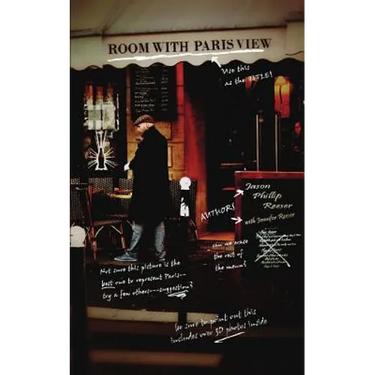 ROOM WITH PARIS VIEW
Use this
as the TITLE!
Jason
Phillip
Reeser
with Jennifer Reeser
AUTHORS
can we erase
the rest of
the menu?
Not sure this picture is the
best one to represent Paris--
try a few others---suggestion?
be sure to point out this
includes over 30 photos inside